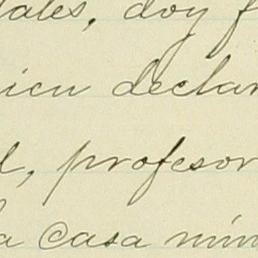 tales, doy f
ien declar
l, profesor
la casa núm